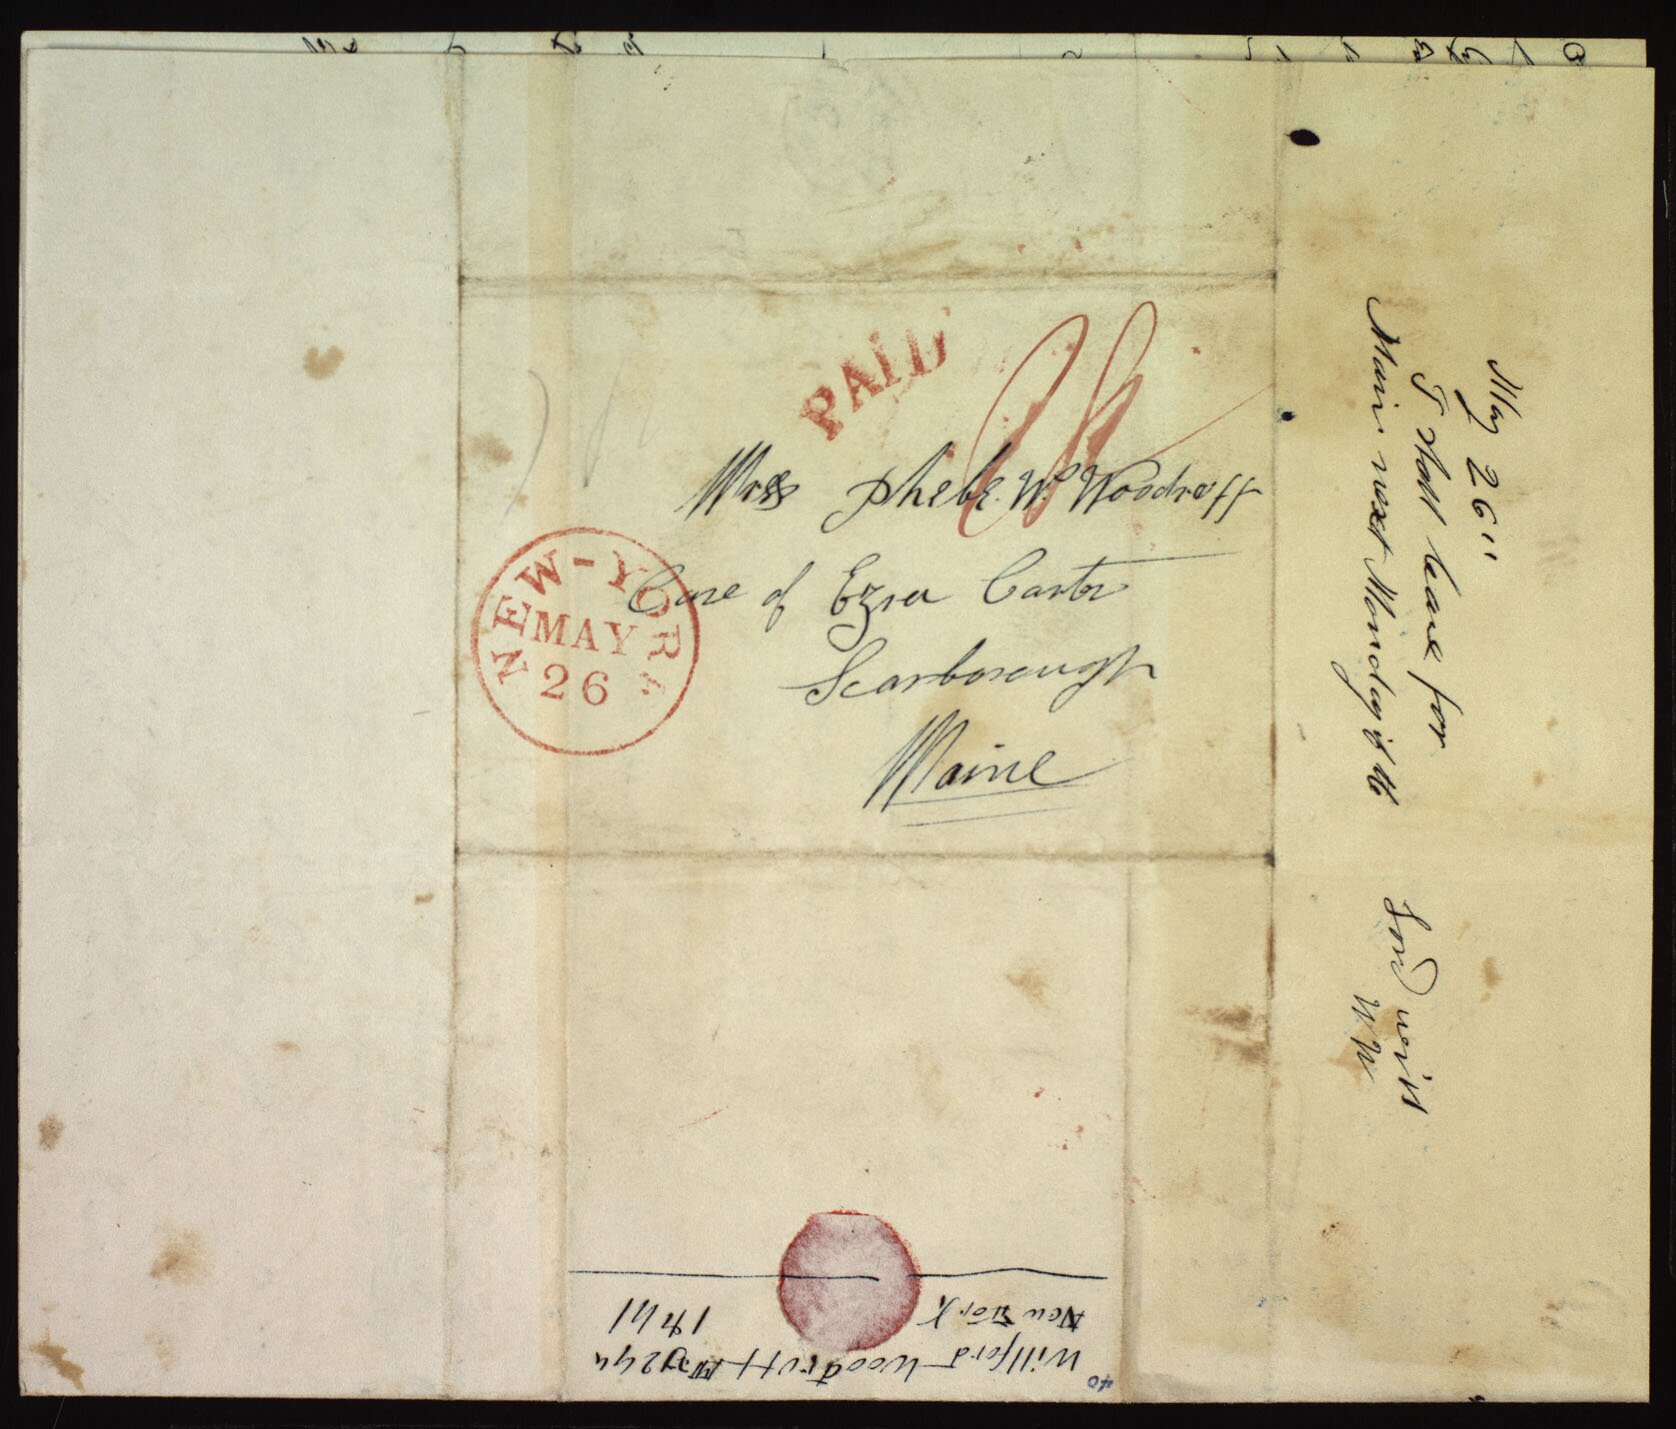 PAID
Mrss Phebe. W. Woodruff
Care of Ezra Carter
Scarborough
Maine
NEW-YORK
MAY
26
May 26"
I shall leave for
Main next Monday if the
Lord will
W W
Willford Woodruff May 24
New York 1841